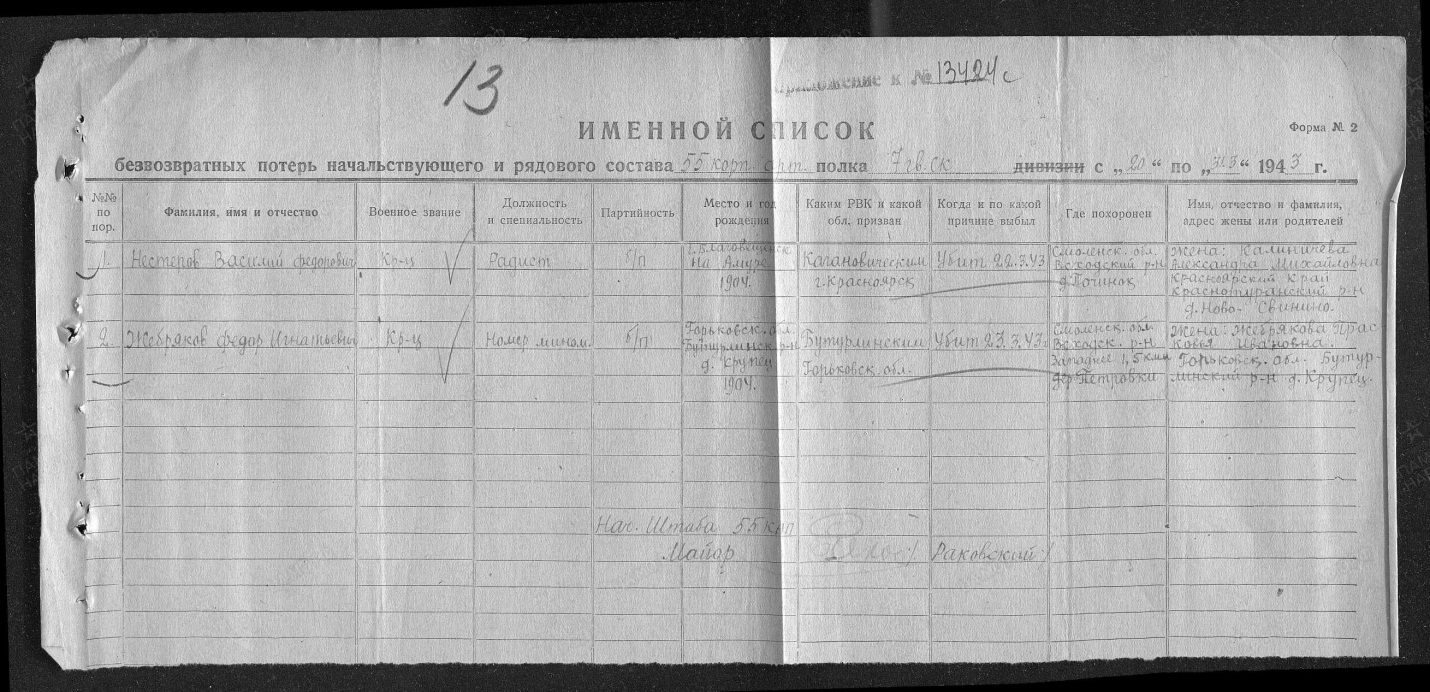 13
Приложение к № 13424с
ИМЕННОЙ СПИСОК
Форма № 2
безвозвратных потерь начальствующего и рядового состава 55 корп. арт. полка 7 гв. ск дивизии с „20“ по „31.3“ 1943 г.
№№ по пор.
Фамилия, имя и отчество
Военное звание
Должность и специальность
Партийность
Место и год рождения
Каким РВК и какой обл. призван
Когда и по какой причине выбыл
Где похоронен
Имя, отчество и фамилия, адрес жены или родителей
1.
Нестеров Василий Федорович
Кр-ц
Радист
б/п
г. Благовещенск
На Амуре
1904.
Кагановическим
г. Красноярск
Убит 22.3.43
Смоленск. обл.
Всходский р-н
д. Починок
Жена: Калиничева
Александра Михайловна
Красноярский край
Краснотуранский р-н
д. Ново-Свинино.
2.
Жебряков Федор Игнатьевич
Кр-ц
Номер мином.
б/п
Горьковск. обл.
Бутурлинск. р-н
д. Крупец
1904.
Бутурлинским
Горьковск. обл.
Убит 23.3.43.
Смоленск. обл.
Всходск. р-н
Западнее 1,5 км
дер Петровки
Жена: Жебрякова Прас
ковья Ивановна.
Горьковск. обл. Бутур-
линский р-н д. Крупец.
Нач. Штаба 55 кап
Майор /Раковский/